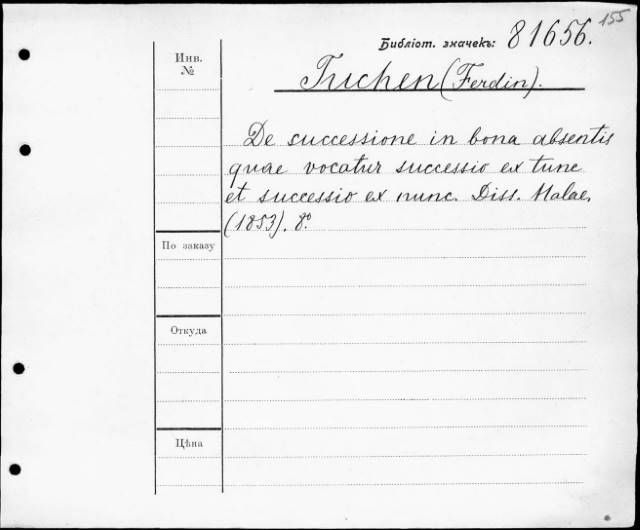 155
Библіот. значекъ: 81656.
Инв.
№
Tuchen (Ferdin).
De successione in bona absentis
quae vocatur successio ex tunc
et successio ex nunc. Diss. Halae,
(1853). 8º.
По заказу
Откуда
Цѣна